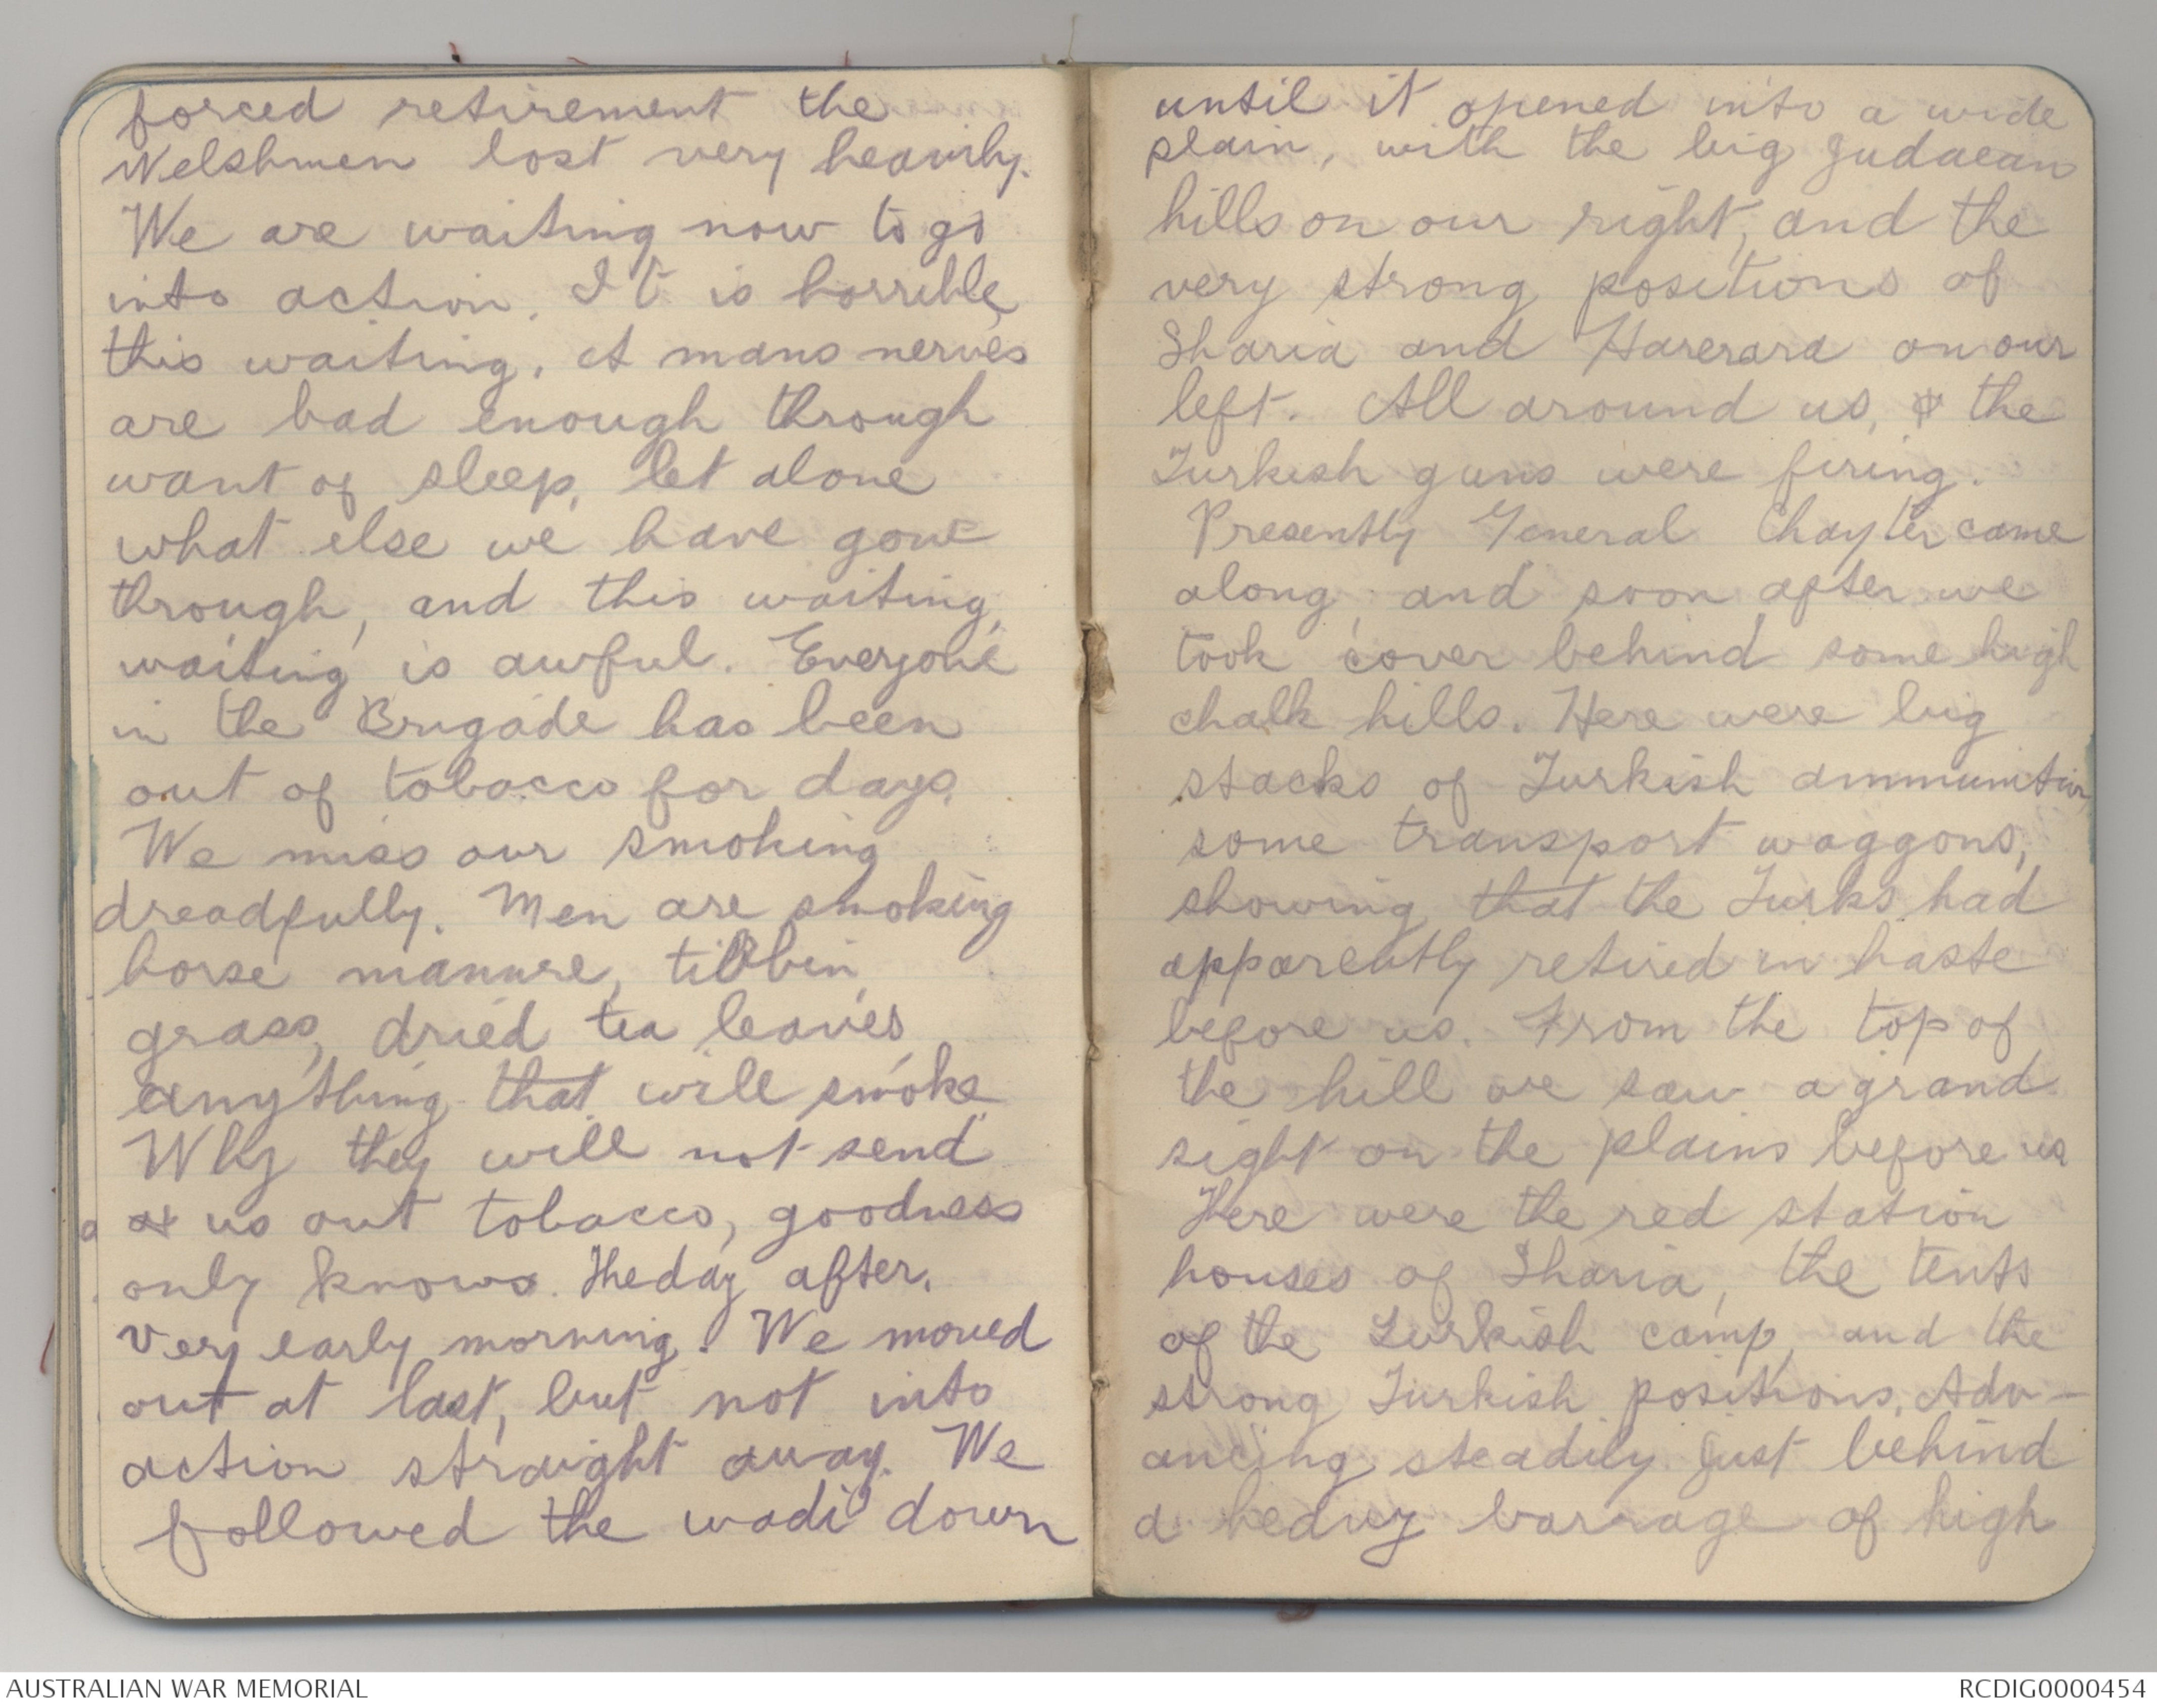 forced retirement the
Welshmen lost very heavily.
We are waiting now to go
into action. It is horrible,
this waiting. A mans nerves
are bad enough through
want of sleep, let alone
what else we have gone
through, and this waiting,
waiting is awful. Everyone
in the Brigade has been
out of tobacco for days.
We miss our smoking
dreadfully. Men are smoking
horse manure, tibbin,
grass, dried tea leaves
anything that will smoke
Why they will not send
us out tobacco, goodness
only knows. The day after.
Very early morning. We moved
out at last, but not into
action straight away. We
followed the wadi down
until it opened into a wide
plain, with the big Judaean
hills on our right, and the
very strong positions of
Sharia and Harerara on our
left. All around us, the
Turkish guns were firing.
Presently General Chayter came
along, and soon after we
took cover behind some high
chalk hills. Here were big
stacks of Turkish ammunition,
some transport waggons,
showing that the Turks had
apparently retired in haste
before us. From the top of
the hill we saw a grand
sight on the plains before us
Here were the red station
houses of Sharia, the tents
of the Turkish camp, and the
strong Turkish positions. Adv-
ancing steadily just behind
a heavy barrage of high
AUSTRALIAN WAR MEMORIAL
RCDIG0000454